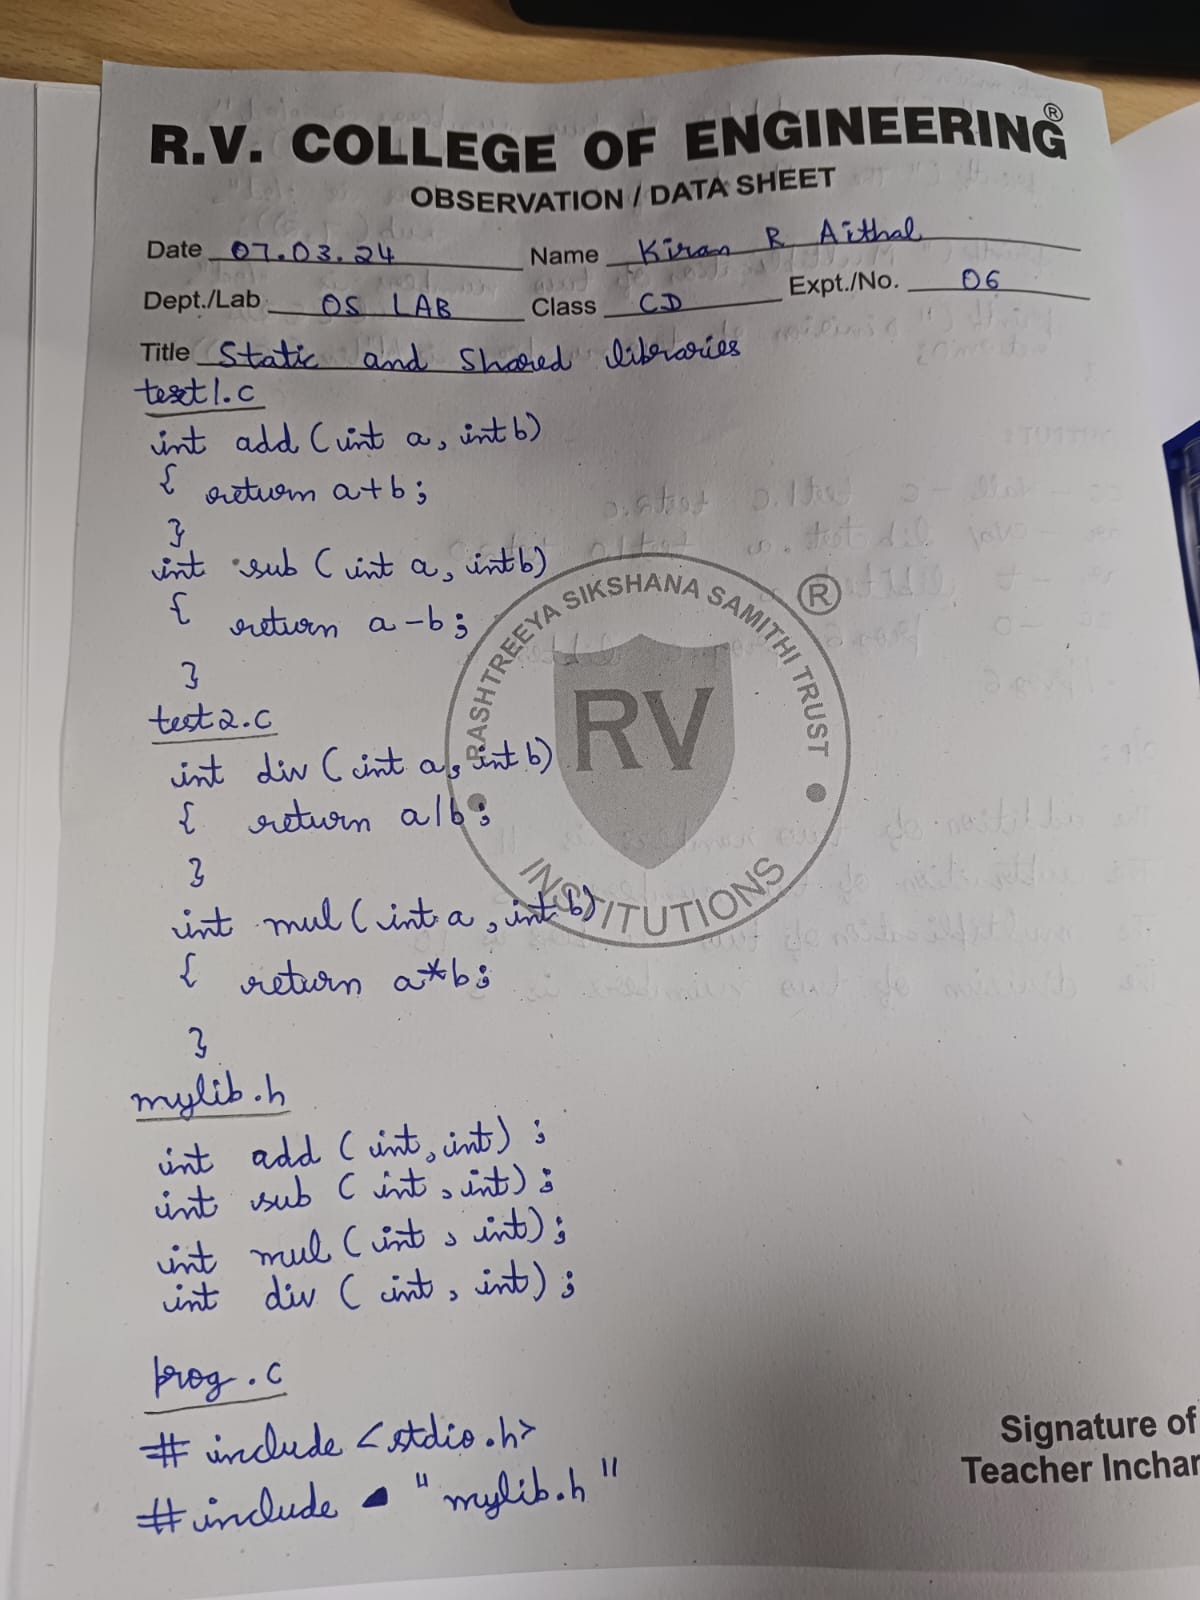 R.V. COLLEGE OF ENGINEERING ®
OBSERVATION / DATA SHEET
Date 07.03.24 Name Kiran R Aithal
Dept./Lab OS LAB Class CD Expt./No. 06
Title Static and Shared libraries
test1.c
int add (int a, int b)
{ return a+b;
}
int sub (int a, int b)
{ return a-b;
}
test2.c
int div (int a, int b)
{ return a/b;
}
int mul (int a, int b)
{ return a*b;
}
mylib.h
int add (int, int) ;
int sub (int, int) ;
int mul (int, int) ;
int div (int, int) ;
prog.c
# include <stdio.h>
# include "mylib.h"
RASHTREEYA SIKSHANA SAMITHI TRUST ®
RV
INSTITUTIONS
Signature of
Teacher Inchar